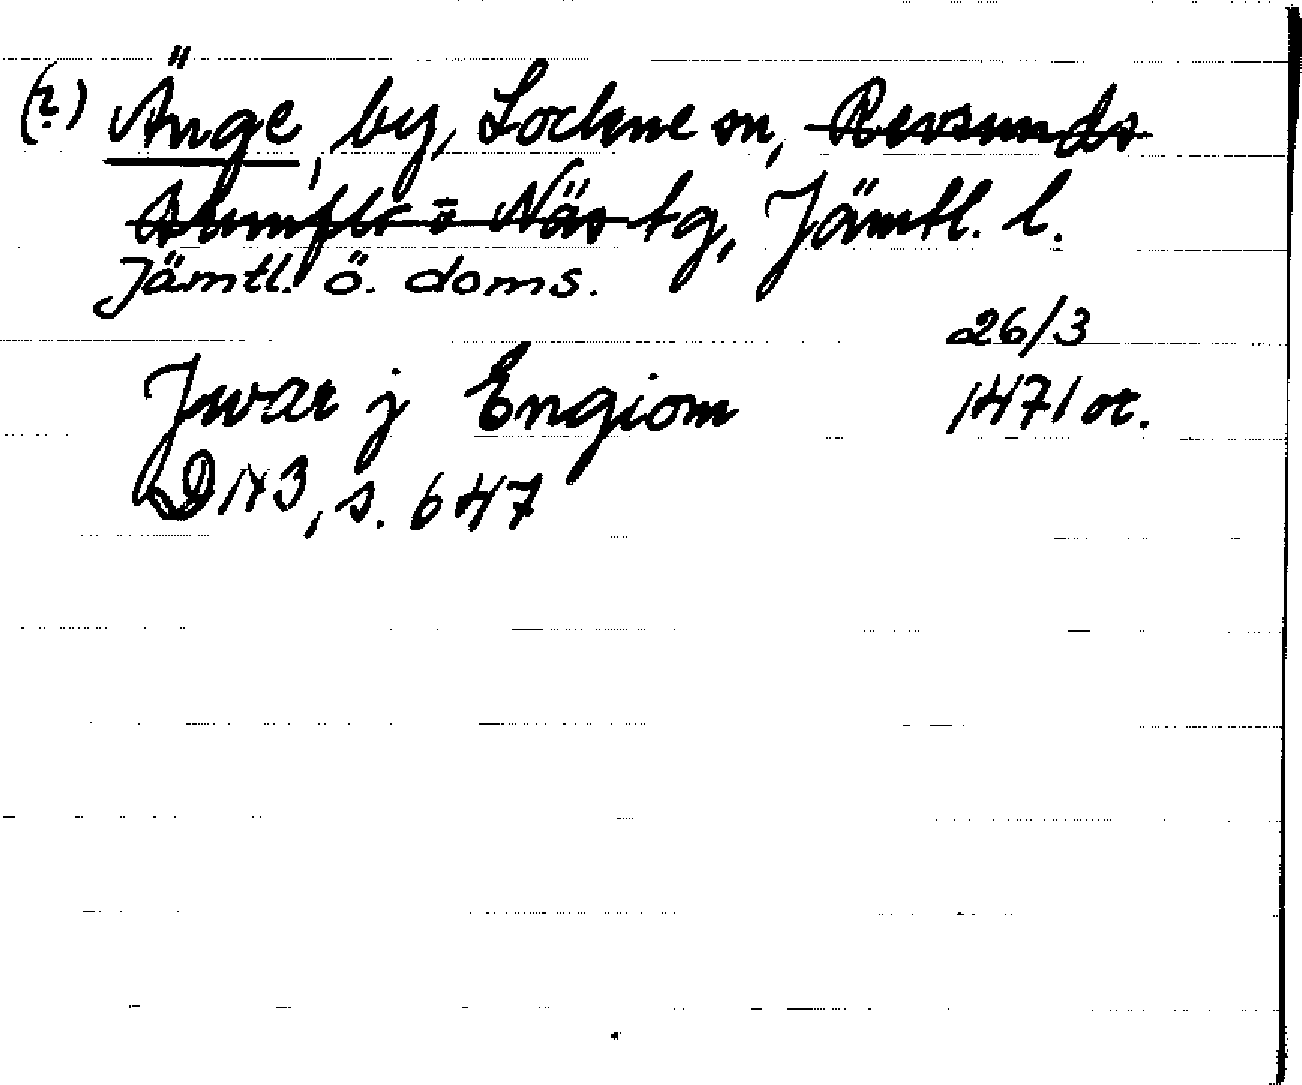 (?) Änge, by, Lockne sn, Revsunds
Brunflo o Näs tg, Jämtl. l.
Jämtl. ö. doms.
26/3
Jwar j Engiom 1471 or.
DN 3, s. 647